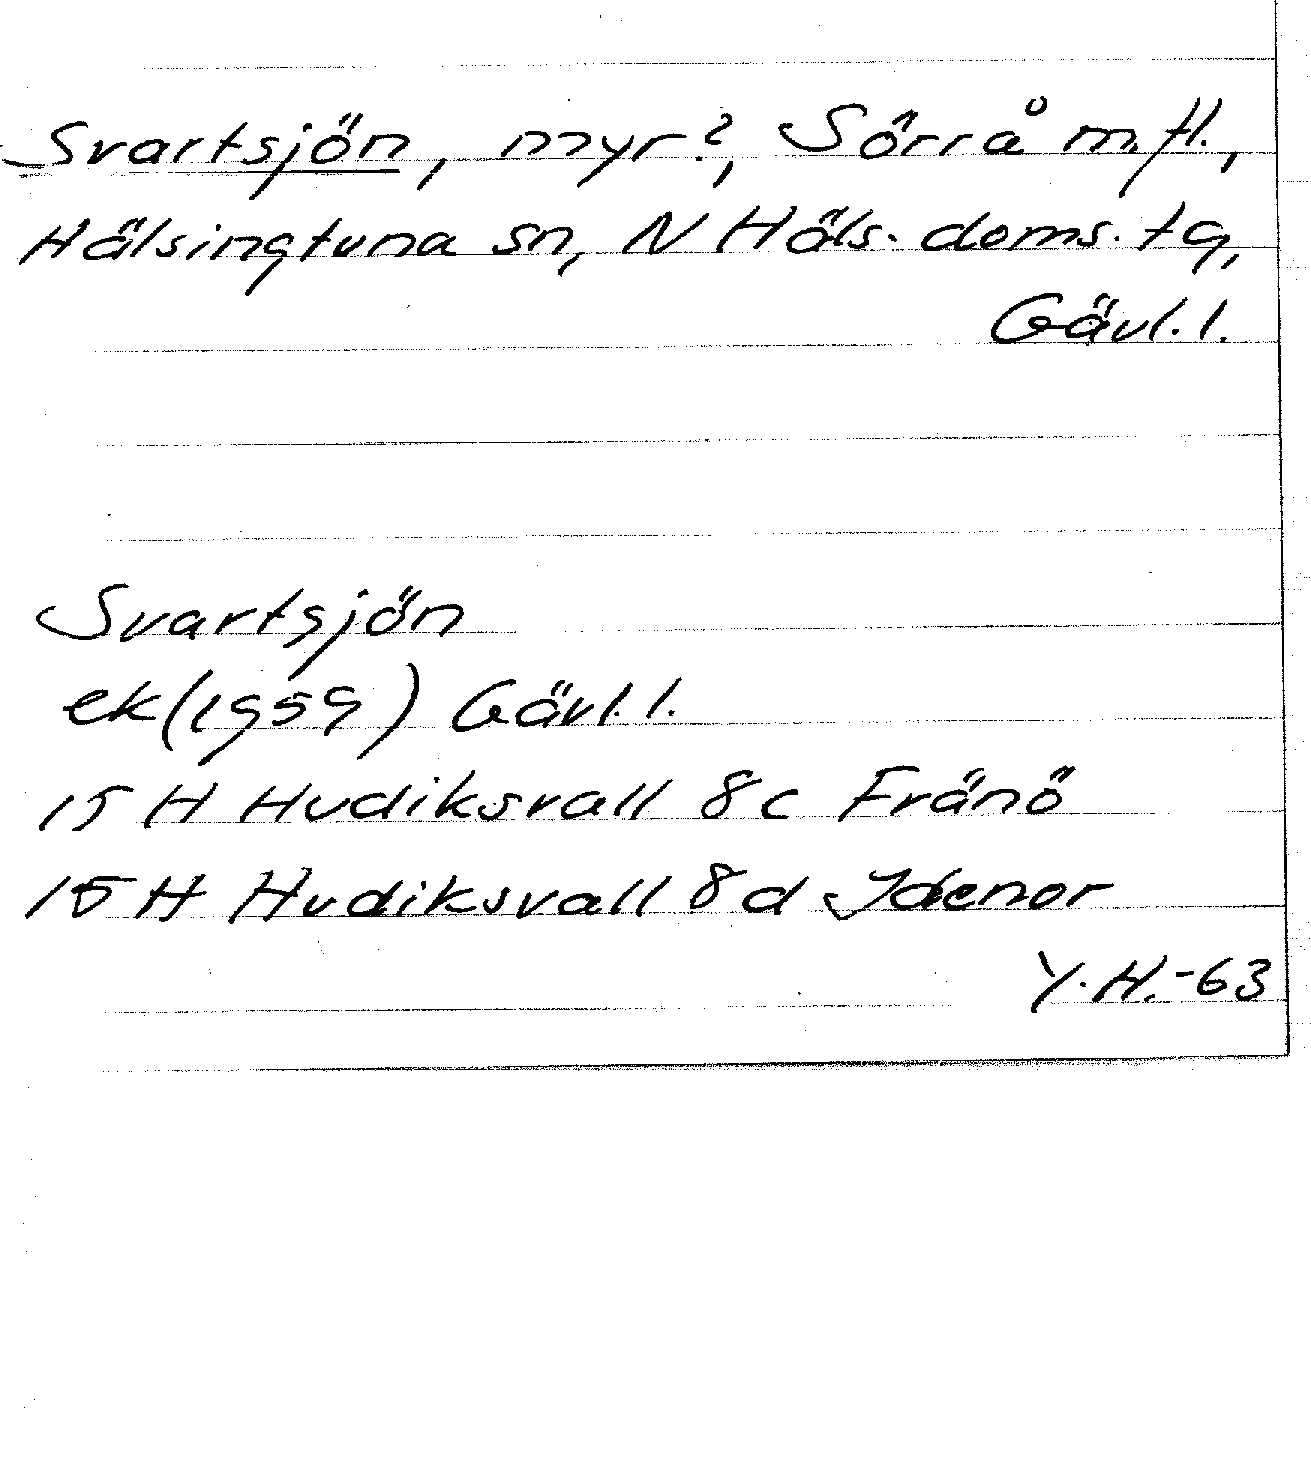 Svartsjön, myr?, Sörrå m.fl.,
Hälsingtuna sn, N Häls. doms. tg,
Gävl.l.
Svartsjön
ek(1959) Gävl.l.
15 H Hudiksvall 8c Fränö
15 H Hudiksvall 8d Idenor
Y.H.-63